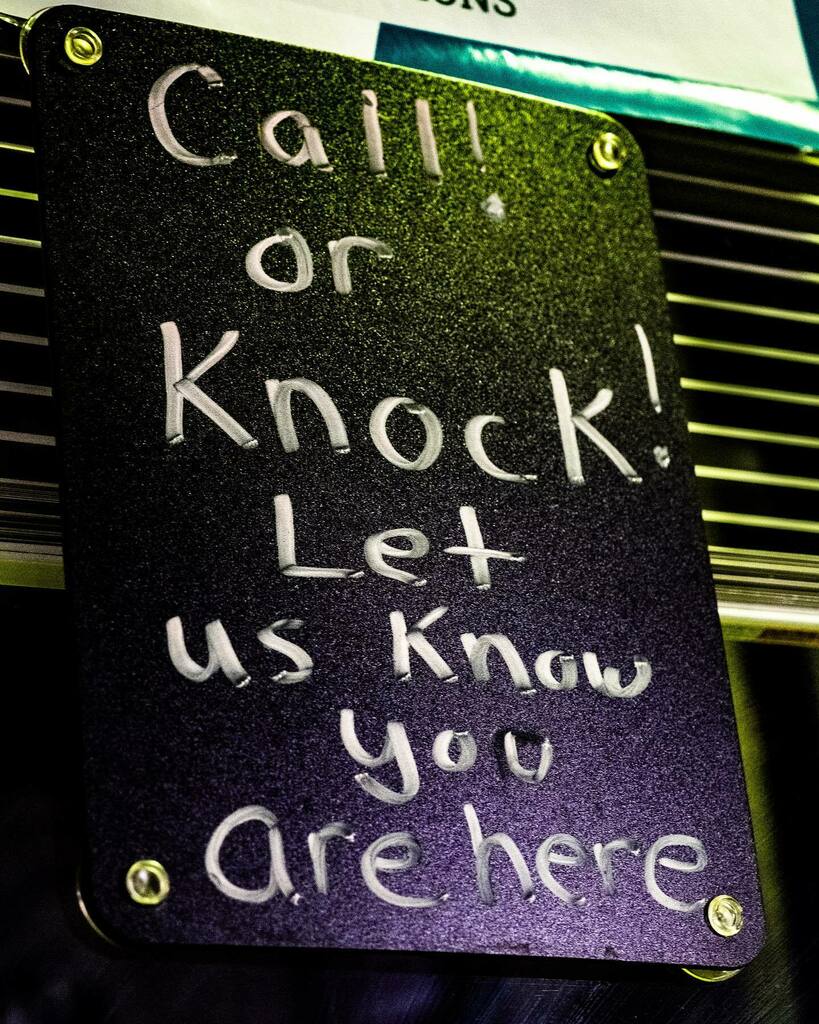 Call!
or
Knock!
Let
us Know
you
are here